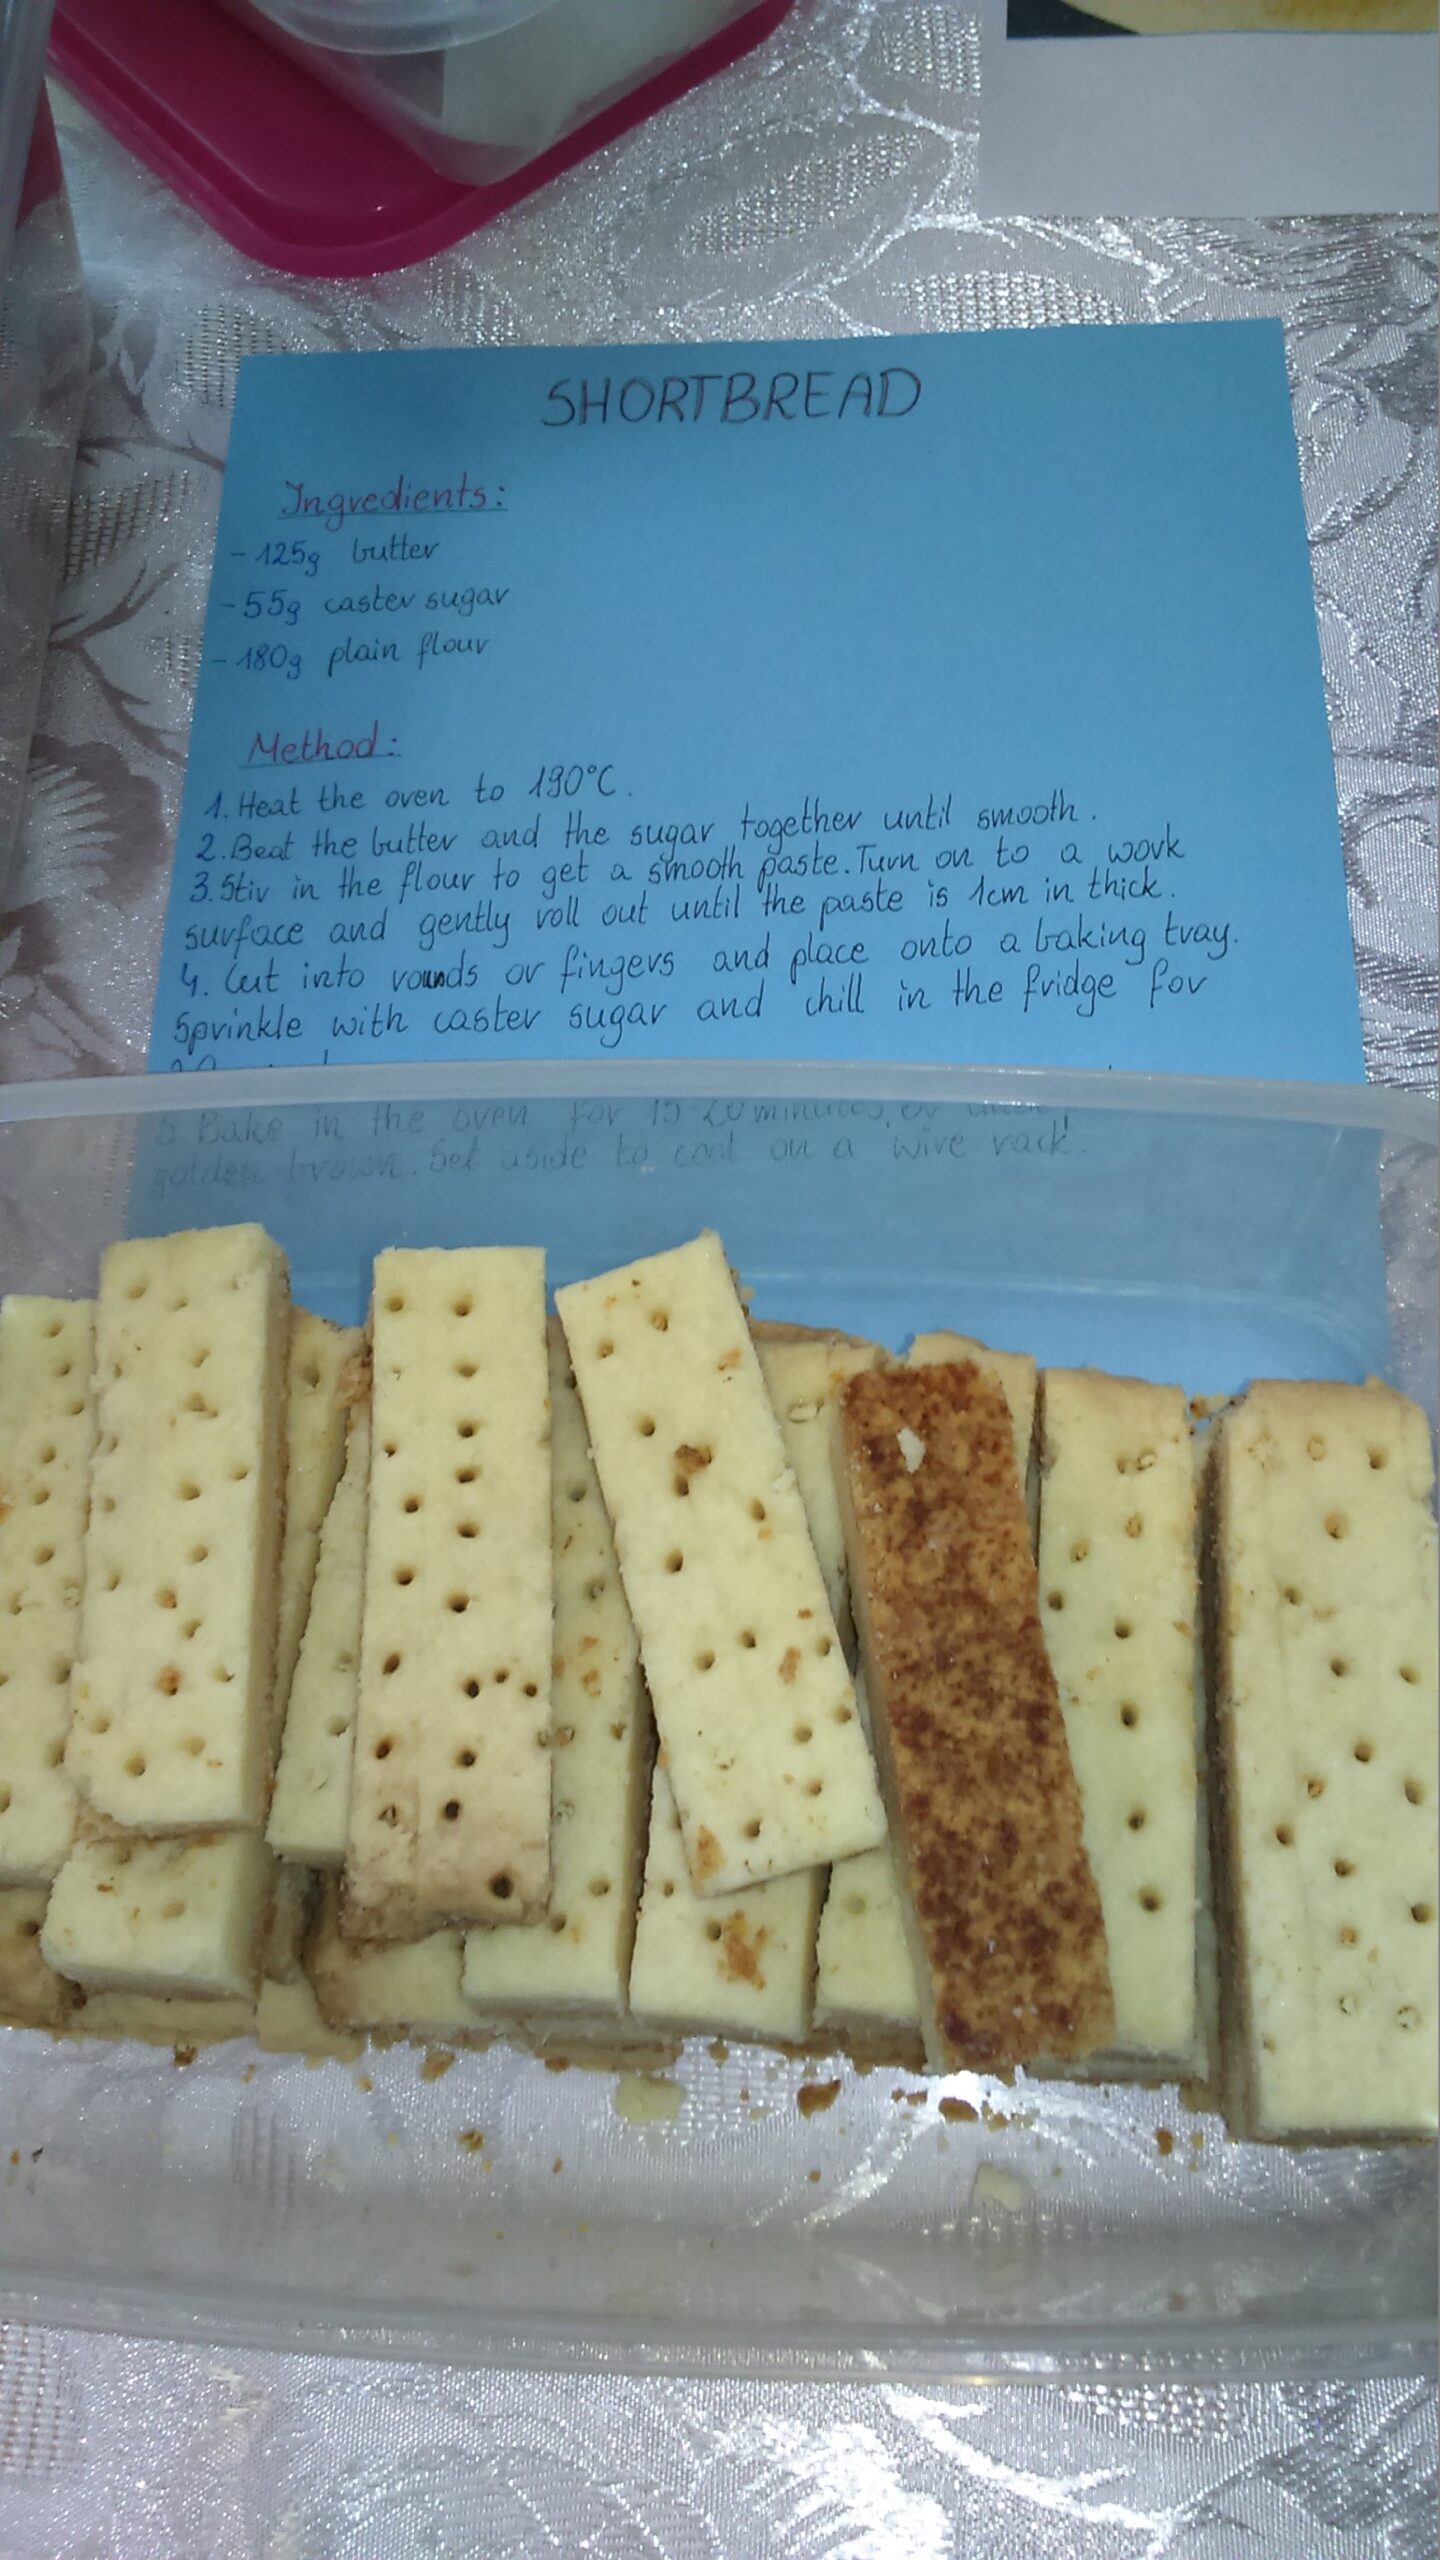 SHORTBREAD
Ingredients:
- 125g butter
- 55g caster sugar
- 180g plain flour
Method:
1. Heat the oven to 190°C.
2. Beat the butter and the sugar together until smooth.
3. Stir in the flour to get a smooth paste. Turn on to a work
surface and gently roll out until the paste is 1cm in thick.
4. Cut into rounds or fingers and place onto a baking tray.
Sprinkle with caster sugar and chill in the fridge for
5. Bake in the oven for 15-20 minutes, or
golden brown. Set aside to cool on a wire rack.